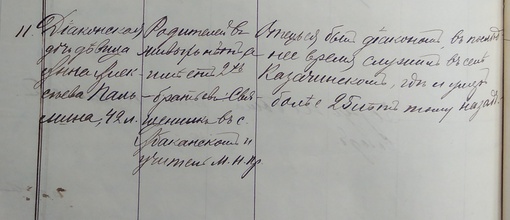 11.
Дiаконская
дочь девица
Анна Алек-
сѣева Паль-
мина, 42 л.
Родителей въ
живыхъ нѣтъ, а
есть 2хъ
братьевъ Свя-
щенникъ въ с.
Абаканскомъ и
учитель М. Н. Пр.
Отецъ был дiакономъ, въ послѣд-
нее время служилъ въ селѣ
Казачинскомъ, гдѣ и умеръ
болѣе 25 лѣтъ тому назадъ.